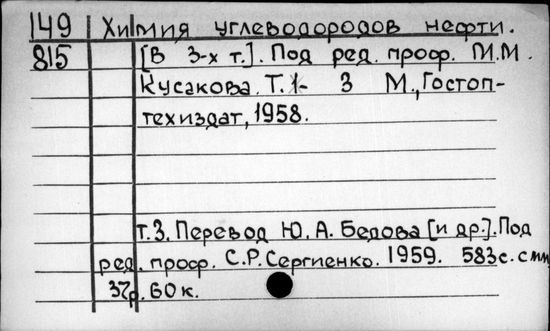 149 Химия углеводородов нефти.
815 [В 3-х т.]. Под ред. проф. М.М.
Кусакова. Т. 1- 3 М., Гостоп-
техиздат, 1958.
т.3. Перевод Ю. А. Бедова [и др.]. Под
ред. проф. С.Р. Сергиенко. 1959. 583 с. с илл
37р. 60 к.